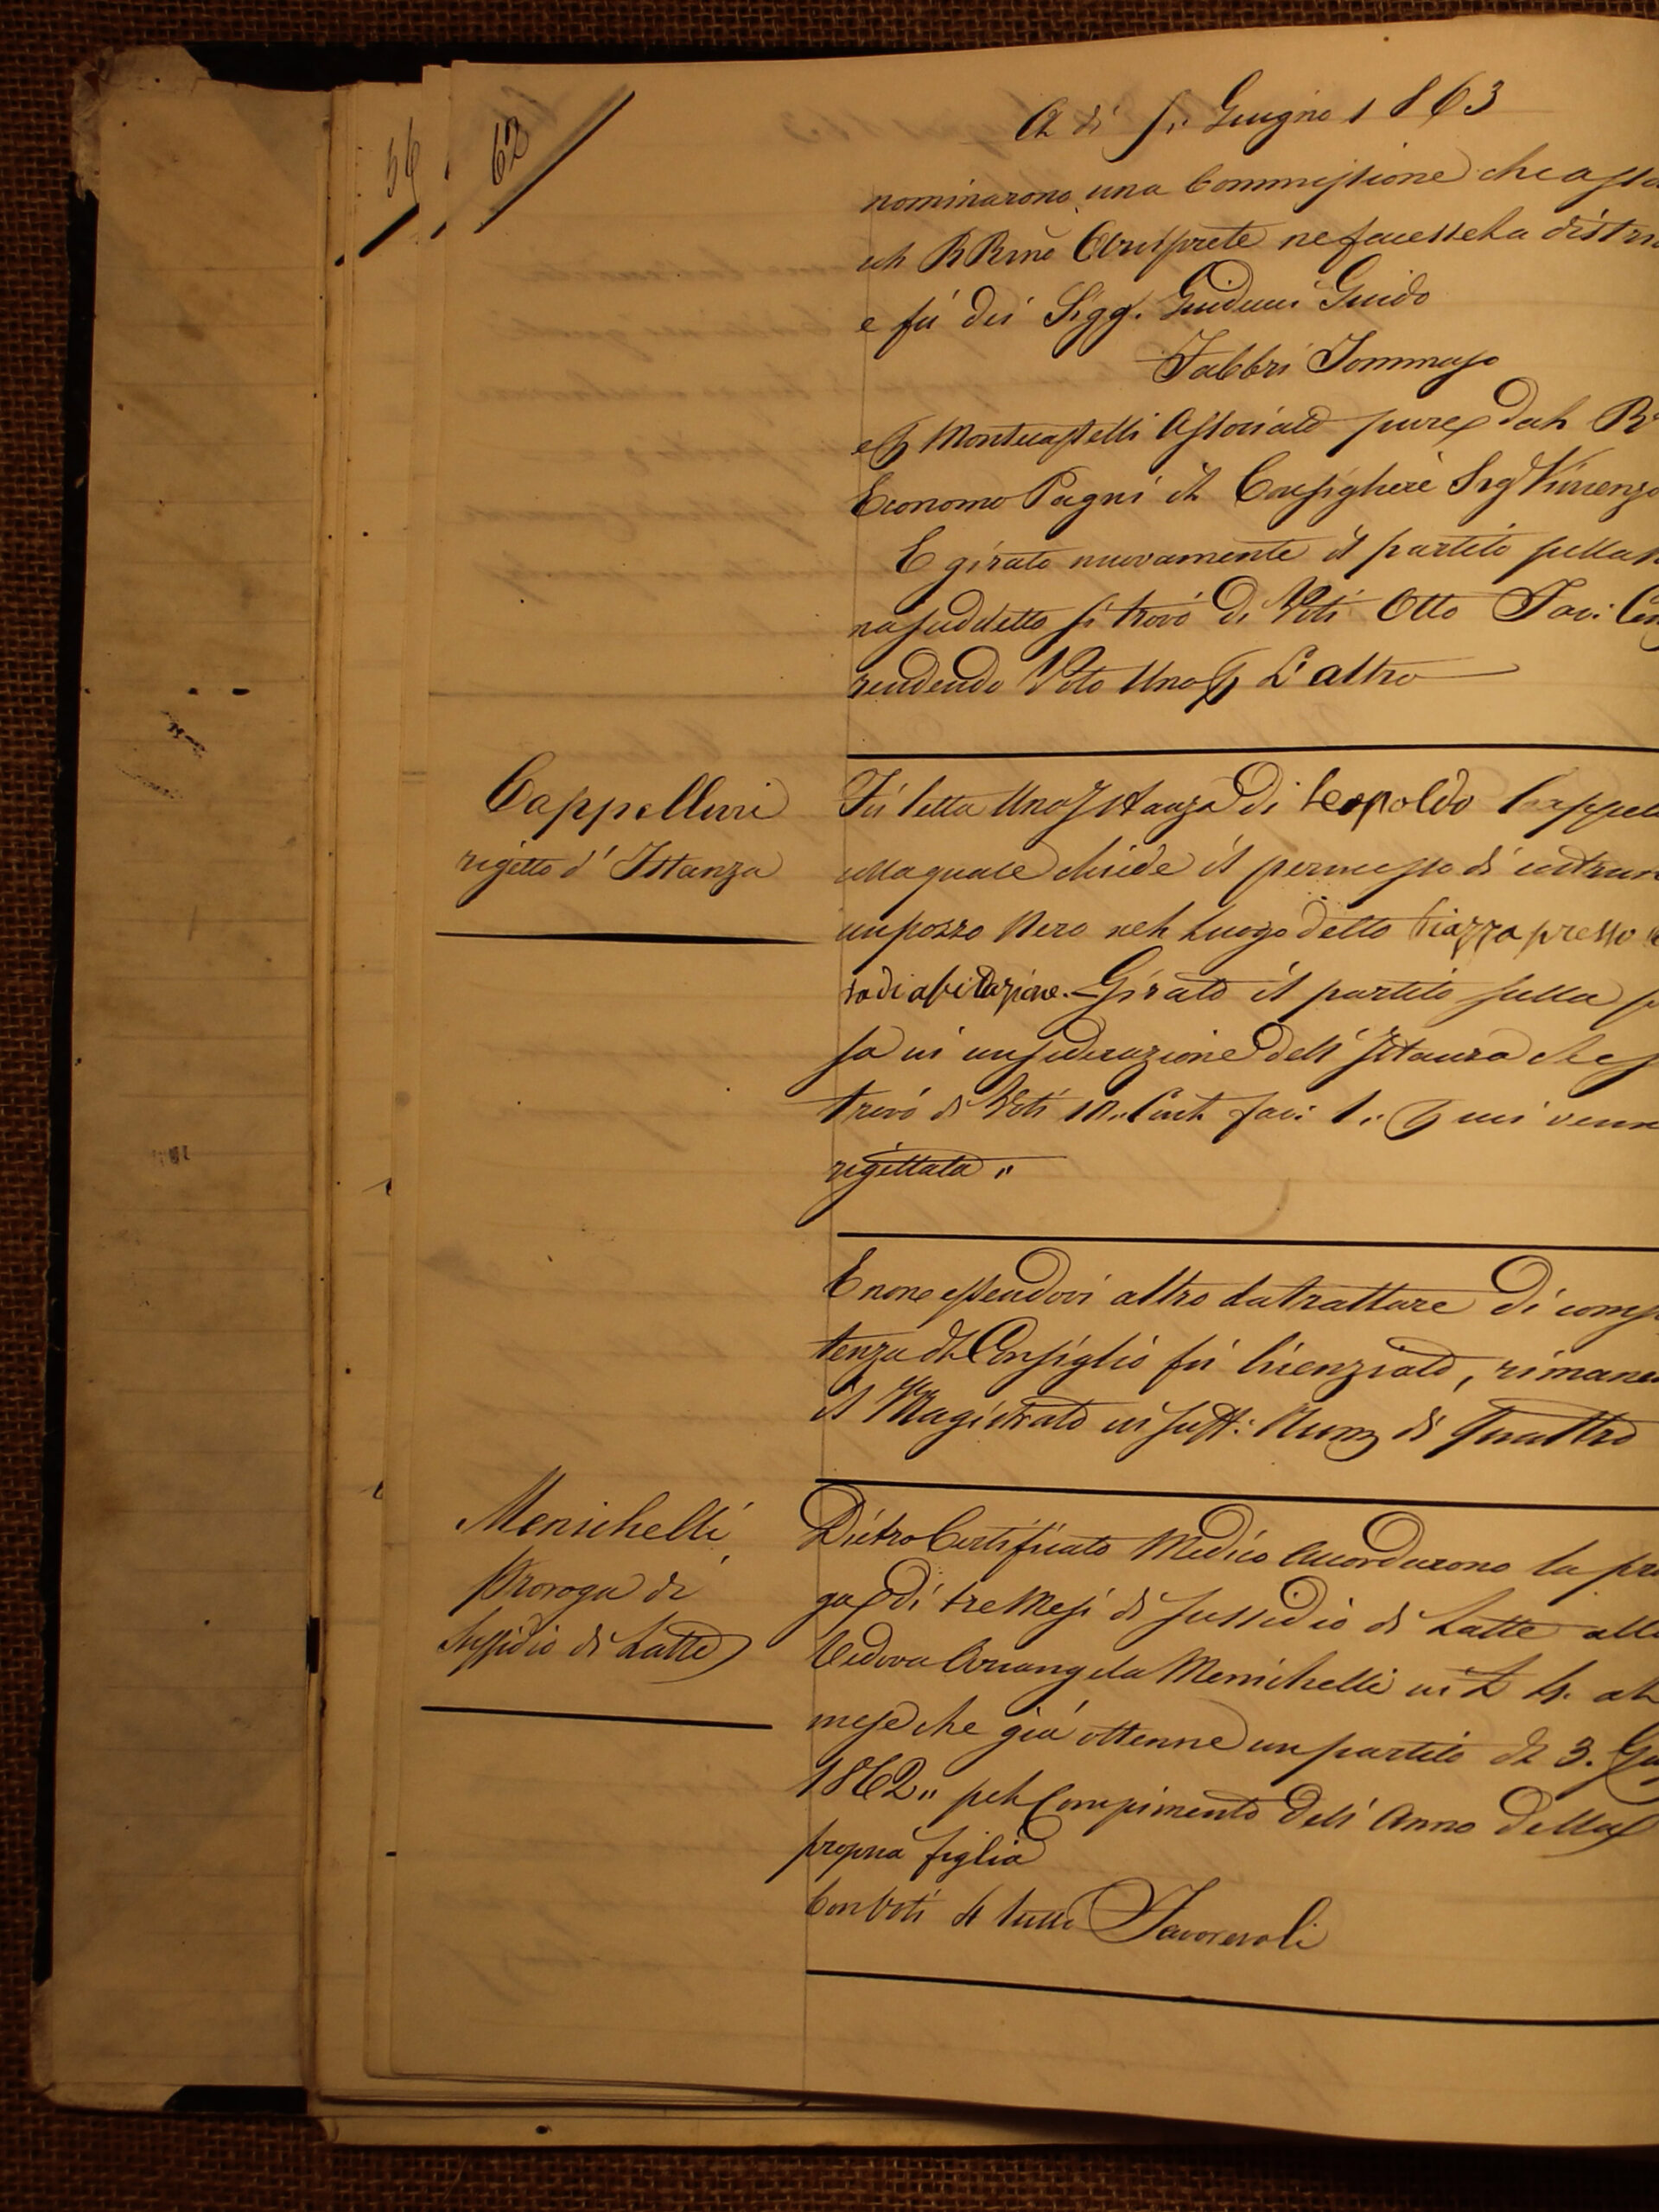 56
62
A dì 5. Giugno 1863
nominarono una Commissione che asso
al RRmo Arciprete ne facesse la distri
e fù dei Sigg. Guiducci Guido
Fabbri Tommaso
e Montecastelli Associato pure dal
Economo Pagni il Consigliere Sigr Vincenzo
E girato nuovamente il partito sulla
na suddetto si trovò di Voti Otto Fav:
rendendo Voto Uno L'altro
Cappellini
rigetto d'Istanza
Fù letta Una Istanza di Leopoldo Cappell
colla quale chiede il permesso di costrur
un pozzo Nero nel Luogo detto Piazza presso
sa di abitazione. Girato il partito sulla p
sa in considerazione dell'Istanza che s
trovò di Voti 10. Cont. fav: 1. cui venne
rigettata „
E non essendovi altro da trattare di compe
tenza del Consiglio fù licenziato, rimane
il Magistrato in suff: Num di Quattro
Menichelli
Proroga di
Sussidio di Latte
Dietro Certificato Medico Accordarono la pro
ga di tre Mesi di sussidio di Latte alla
Vedova Arcangela Menichelli in L 4. al
mese che già ottenne con partito del 3. Giu
1862 „ pel Compimento dell'Anno della
propria figlia
Con Voti 4 tutti Favorevoli